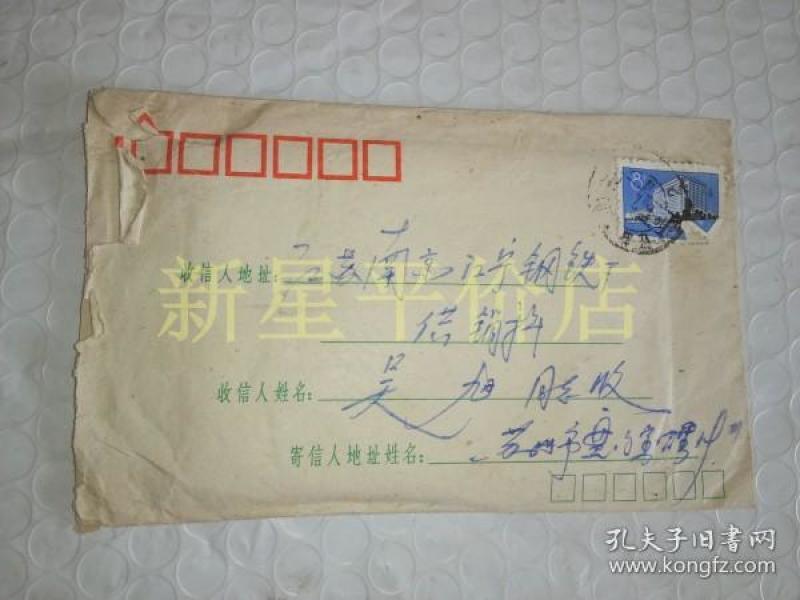 8
收信人地址: 江苏南京江宁钢铁厂
供销科
收信人姓名: 吴旭同志收
寄信人地址姓名: 苏州市
新星平价店
孔夫子旧书网
www.kongfz.com